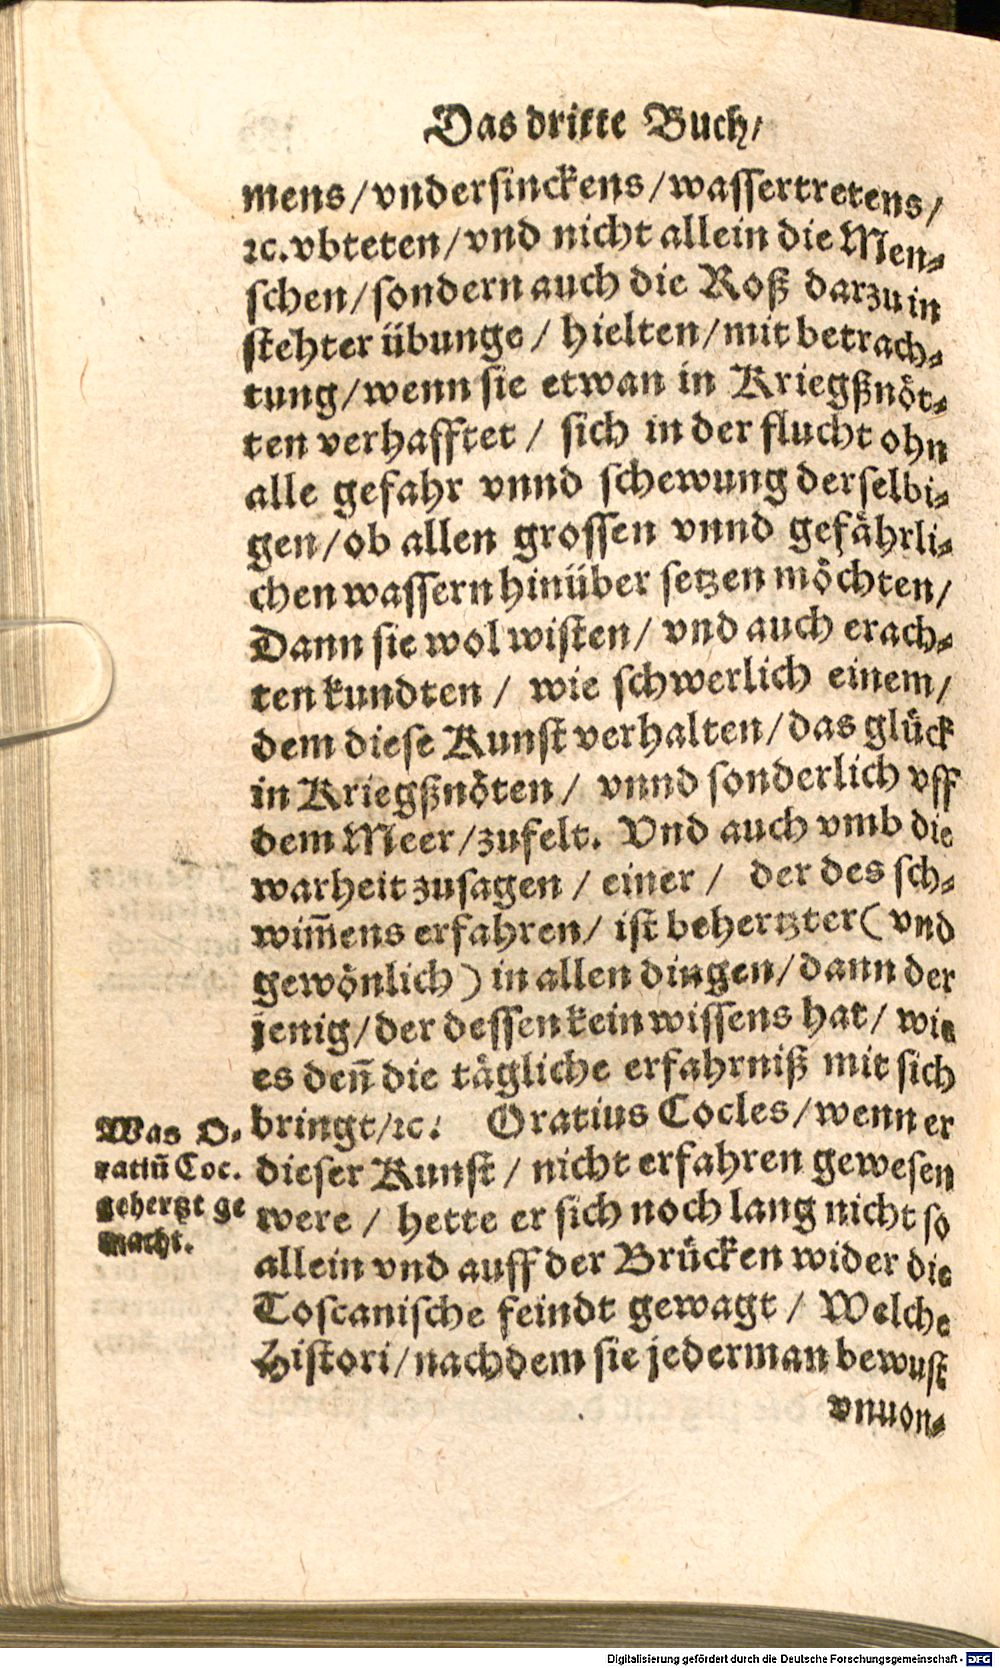 Das dritte Buch/
mens/vndersinckens/wassertretens/
ꝛc. vbteten/vnd nicht allein die Men⸗
schen/sondern auch die Roß darzu in
stehter übunge/ hielten/mit betrach⸗
tung/wenn sie etwan in Kriegßnöt⸗
ten verhafftet/ sich in der flucht ohn
alle gefahr vnnd schewung derselbi⸗
gen/ob allen grossen vnnd gefährli⸗
chen wassern hinüber setzen möchten/
Dann sie wol wisten/ vnd auch erach⸗
ten kundten/ wie schwerlich einem/
dem diese Kunst verhalten/das glück
in Kriegßnöten/ vnnd sonderlich vff
dem Meer/zufelt. Vnd auch vmb die
warheit zusagen/ einer/ der des sch⸗
wim̃ens erfahren/ ist behertzter (vnd
gewönlich) in allen dingen/dann der
jenig/der dessen kein wissens hat/ wie
es deñ die tägliche erfahrniß mit sich
bringt/ꝛc. Oratius Cocles/wenn er
dieser Kunst/ nicht erfahren gewesen
were/ hette er sich noch lang nicht so
allein vnd auff der Brücken wider die
Toscanische feindt gewagt/ Welche
Histori/nachdem sie jederman bewust
vnuon⸗
Was O⸗
ratiũ Coc.
gehertzt ge
macht.
Digitalisierung gefördert durch die Deutsche Forschungsgemeinschaft - DFG